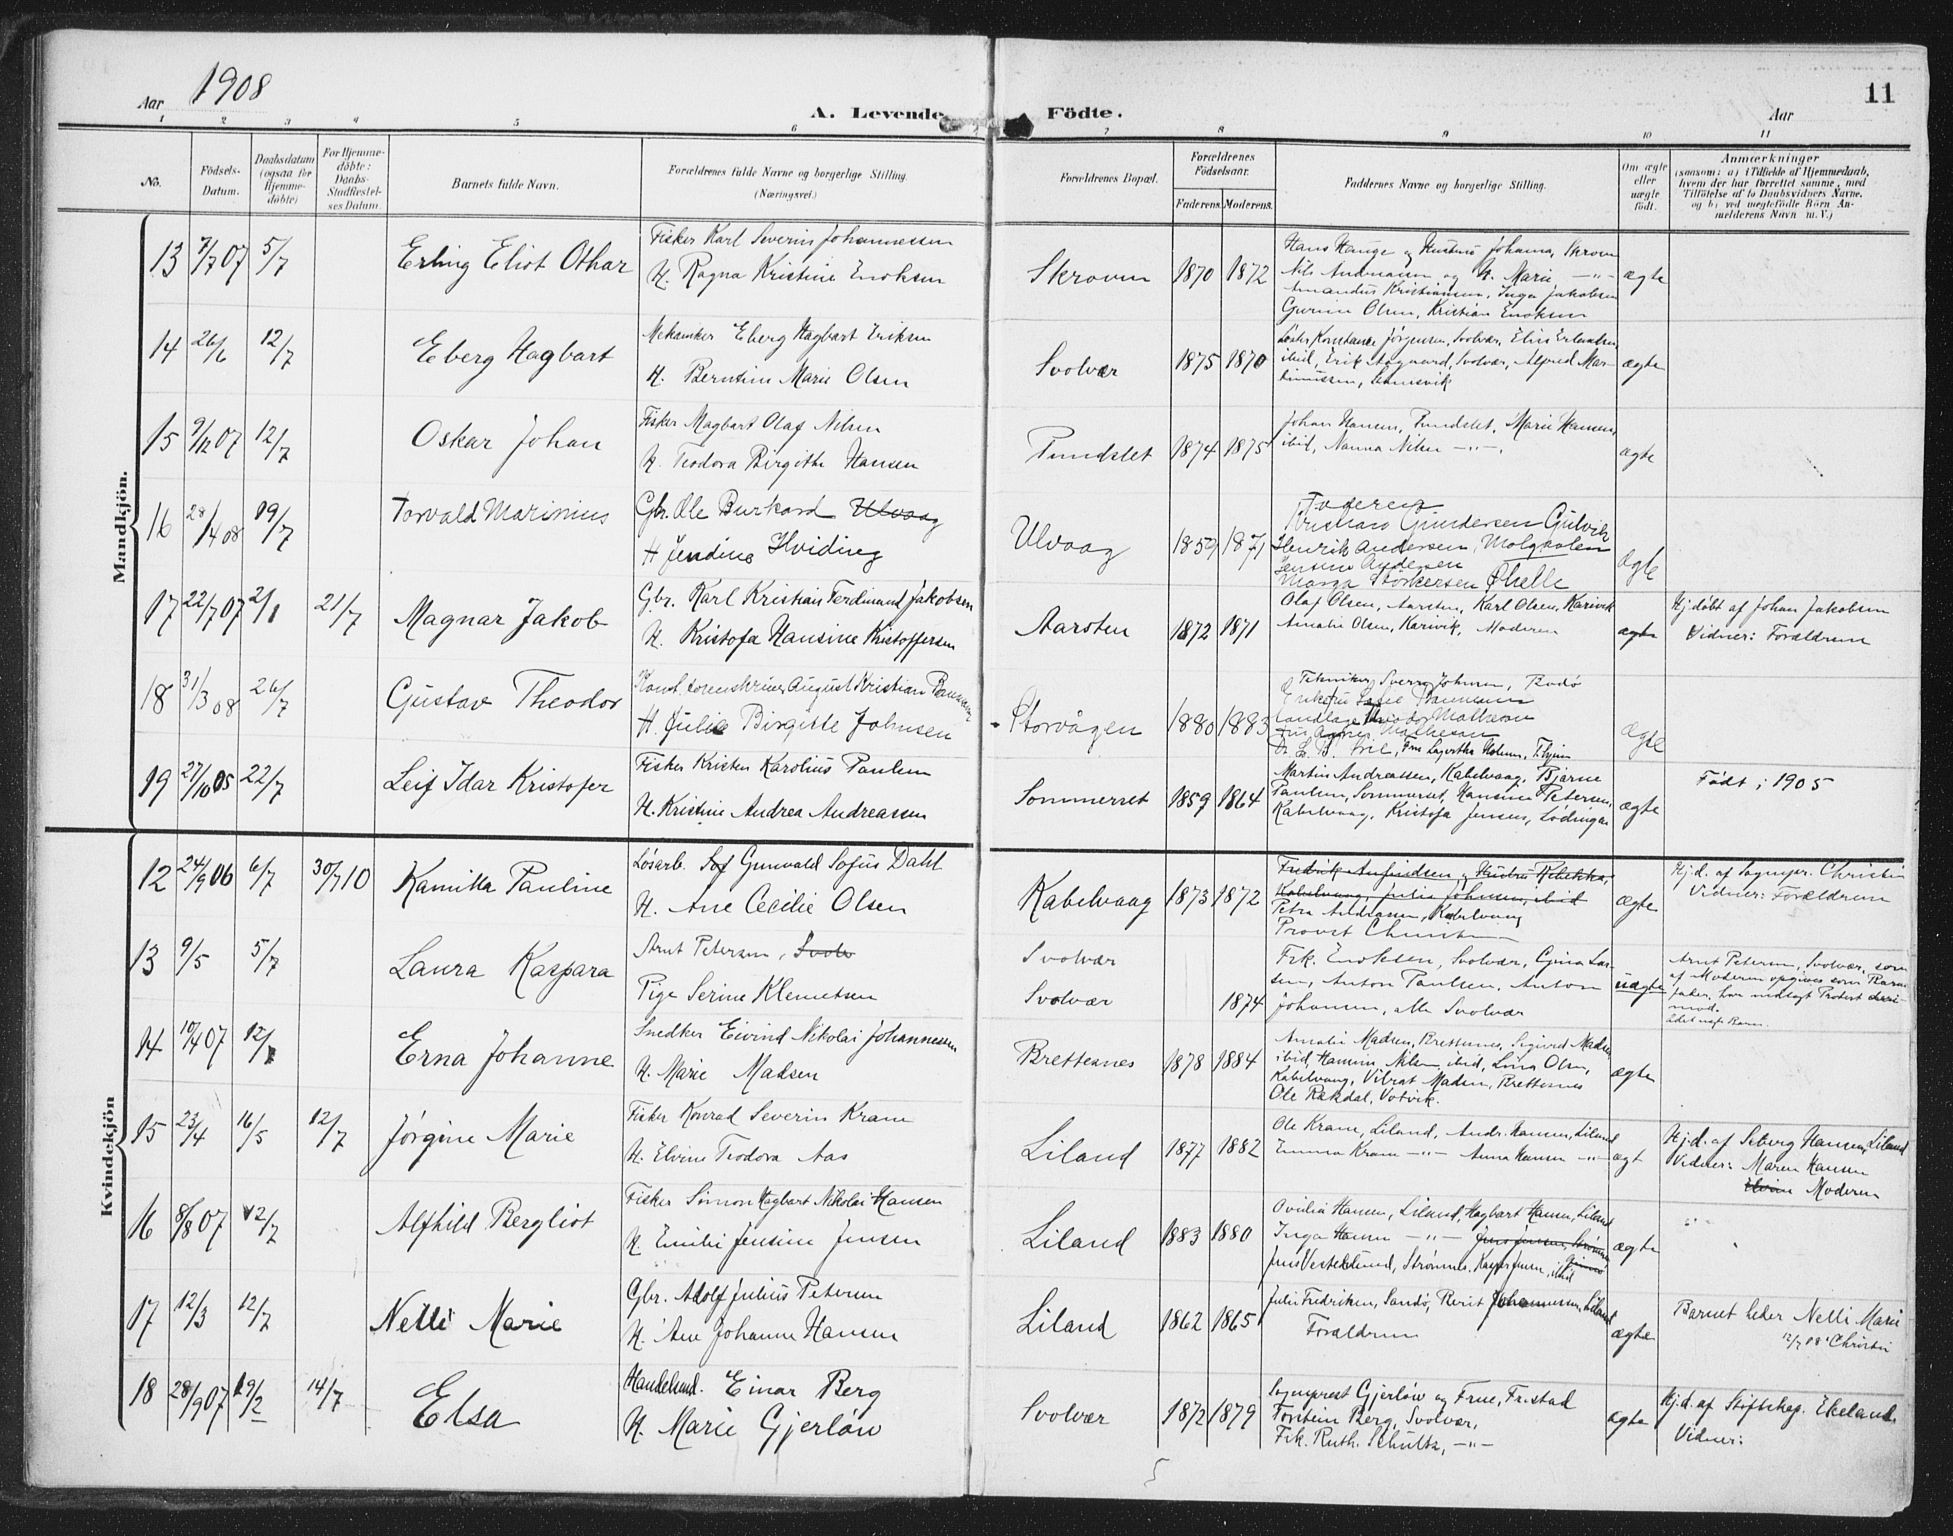 Aar 1908
A. Levende Födte.
Aar
11
1 2 3 4 5 6 7 8 9 10 11
No.
Födsels-Datum.
Daabsdatum (ogsaa for Hjemme-döbte)
For Hjemme-döbte: Daabs-Stadfæstel-ses Datum.
Barnets fulde Navn.
Forældrenes fulde Navne og borgerlige Stilling. (Næringsvei.)
Forældrenes Bopæl.
Forældrenes Födselsaar.
Faderens. Moderens.
Faddernes Navne og borgerlige Stilling.
Om ægte eller uægte födt.
Anmærkninger
(saasom: a) i Tilfælde af Hjemmedaab, hvem der har forrettet samme, med Tilföielse af to Daabsvidners Navne, og b) ved uægtefödte Börn An-melderens Navn m. V.)
Mandkjön.
13 7/7 07 5/7 Erling Eliot Othar
Fisker Karl Severin Johannessen
H. Ragna Kristine Enoksen
Skroven 1870 1872
Hans Hauge og Hustru Johanna, Skroven
Nils Andreassen og H. Marie —"—
Amandus Kristiansen, Inga Jakobsen
Gunine Olsen, Kristian Enoksen
ægte
14 26/6 12/7 Eberg Hagbart
Mekaniker Eberg Hagbart Eriksen
H. Berntine Marie Olsen
Svolvær 1875 1870
Konstanse Jørgensen, Svolvær, Elise Erlandsen
ibid, Erik Aagaard, Svolvær, Alfred Mar-
tinussen,
ægte
15 9/12 07 12/7 Oskar Johan
Fisker Hagbart Olaf Nilsen
H. Teodora Birgitte Hansen
Pundslet 1874 1875
Johan Hansen, Pundslet, Marie Hansen,
ibid, Nanna Nilsen —"—.
ægte
16 28/4 08 19/7 Torvald Marinius
Gbr. Ole Burkard Ulvaag
H Jendine Hviding
Ulvaag 1859 1871
Faderen
Kristian Gundersen Gulvik
Henrik Andersen, Molgkolen
Jensine Andersen
Marga Størkersen Øhelle
ægte
17 22/7 07 2/1 21/7 Magnar Jakob
Gbr. Karl Kristian Ferdinand Jakobsen
H. Kristofa Hansine Kristoffersen
Aarsten 1872 1871
Olaf Olsen, Aarsten, Karl Olsen, Karivik
Amalie Olsen, Karivik, Moderen
ægte
Hj.døbt af Johan Jakobsen
Vidner: Forældrene
18 31/3 08 26/7 Gustav Theodor
August Kristian
H. Julie Birgitte Johnsen
Storvågen 1880 1883
Tekniker Sverre Johnsen, Bodø
Landlæge Theodor Mathesen
Fru Agnes Mathesen
Fru Lagertha Holmen,
ægte
19 27/10 05 22/7 Leif Idar Kristofer
Fisker Kristen Karolius Paulsen
H. Kristine Andrea Andreassen
Sommerset 1859 1864
Martin Andreassen, Kabelvaag, Bjarne
Paulsen, Sommerset, Hansine Petersen,
Kabelvaag, Kristofa Jensen, Lødingen
ægte
Født i 1905
Kvindekjön
12 24/9 06 6/7 30/7 10 Kamilla Pauline
Løsarb. Sof Gunvald Sofus Dahl
H. Ane Cecilie Olsen
Kabelvaag 1873 1872
Fredrik Anfindsen og Hustru Rebekka,
Kabelvaag, Julie Johnsen, ibid
Petra Andreassen, Kabelvaag
Provst Christie
ægte
Hj.d. af Sognepr. Christie
Vidner: Forældrene
13 9/5 5/7 Laura Kaspara
Arnt Petersen, Svolv
Pige Serine Klemetsen
Svolvær
Svolvær 1874
Frk. Enoksen, Svolvær, Gina Lar-
sen, Anton Paulsen, Anton
Johansen, alle Svolvær
uægte
Arnt Petersen, Svolvær, som
af Moderen opgives som Barne-
fader, har nedlagt Protest deri-
mod.
14 10/4 07 12/7 Erna Johanne
Snedker Eivind Nikolai Johannessen
H. Marie Madsen
Brettesnes 1878 1884
Amalie Madsen, Brettesnes, Sigurd Madsen
ibid, Hansine Nilsen ibid, Lina Olsen,
Kabelvaag, Vibrat Madsen, Brettesnes
Ole Rakdal, Votvik.
ægte
15 23/4 16/5 12/7 Jørgine Marie
Fisker Konrad Severin Krane
H. Elvine Teodora Aas
Liland 1877 1882
Ole Krane, Liland, Andr. Hansen, Liland
Emma Krane —"— Anna Hansen —"—
ægt
Hj.d. af Seberg Hansen, Liland
Vidner: Maren Hansen
Elvine Moderen
16 8/8 07 12/7 Alfhild Bergliot
Fisker Simon Hagbart Nikolai Hansen
H. Emilie Jensine Jensen
Liland 1883 1880
Ovidia Hansen, Liland, Hagbart Hansen, Liland
Inga Hansen —"— Jens Jensen, Strømnes
Jens Vesteklund, Strømnes, Kasper Jensen, ibid
ægte
17 12/3 12/7 Nelli Marie
Gbr. Adolf Julius Petersen
H. Ane Johanne Hansen
Liland 1862 1865
Julie Fredriksen, Sandø, Berit Johannessen, Liland
Forældrene
ægte
Barnet heder Nelli Marie
12/7 08 Christie
18 28/9 07 19/2 14/7 Elsa
Handelsmd. Einar Berg
H. Marie Gjerløw
Svolvær 1872 1879
Sogneprest Gjerløw og Frue, Frostad
Torstein Berg, Svolvær,
Frk. Ruth. Schultz, —"—
ægte
Hj.d. af Stiftskap. Ekeland
Vidner:
5